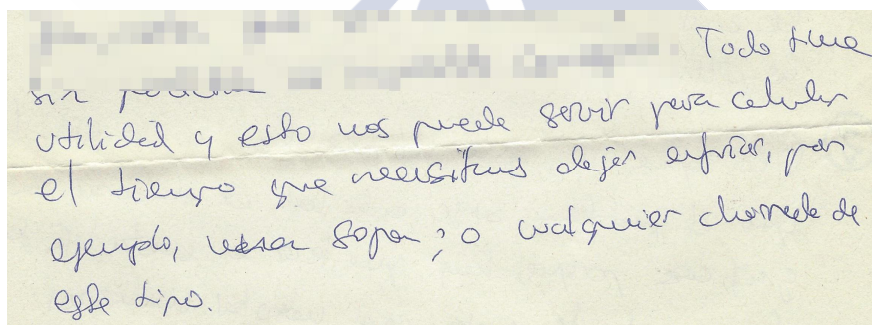 Todo tiene
sin
utilidad y esto nos puede servir para calcular
el tiempo que necesitamos dejar enfriar, por
ejemplo, sopa; o cualquier chorrada de
este tipo.